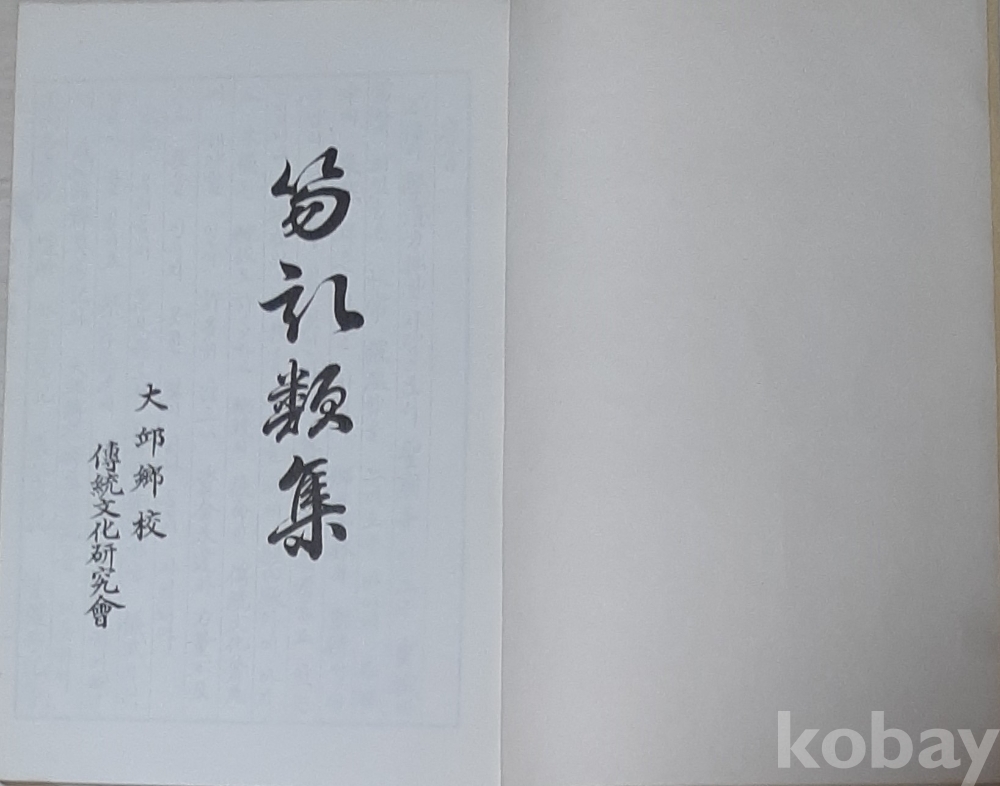 笏記類集
大邱鄉校
傳統文化研究會
kobay